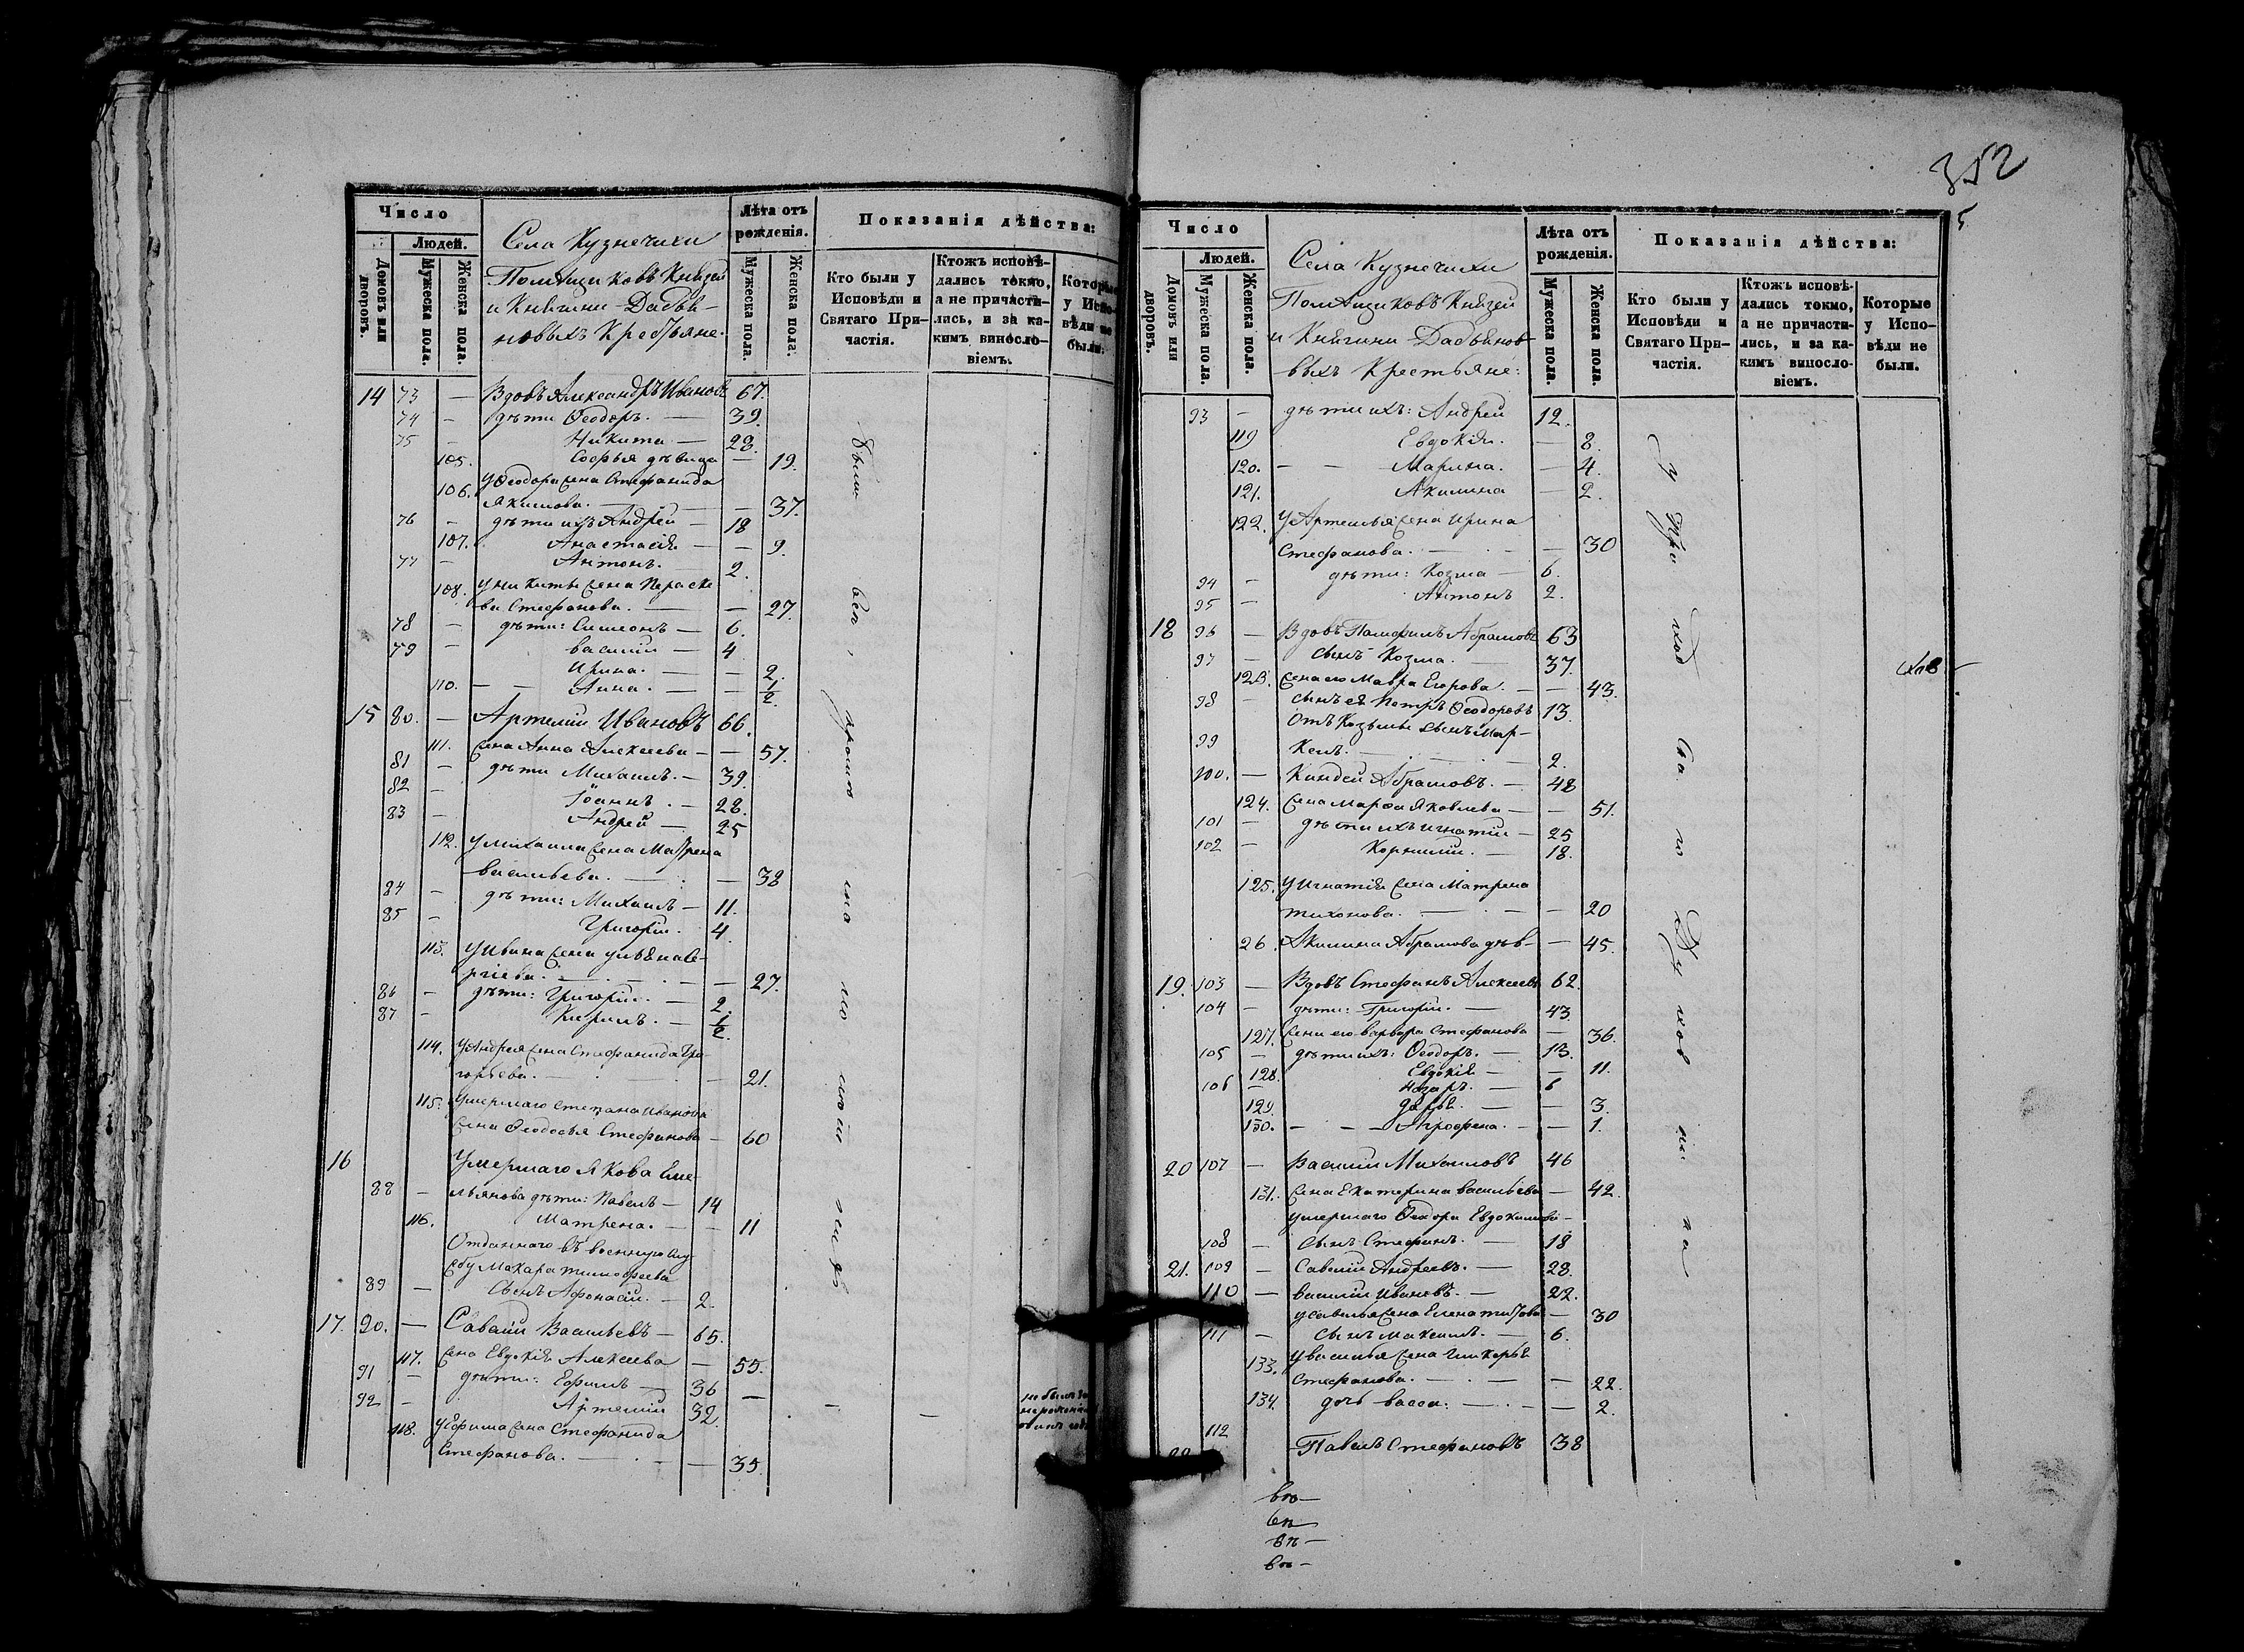 352
5
Число
Людей.
Домовъ или дворовъ.
Мужеска пола.
Женска пола.
Села Кузнечихи
Помѣщиковъ Князей
и Княгини Дадья-
новыхъ Крестьяне.
Лѣта отъ рожденія.
Мужеска пола.
Женска пола.
Показанія дѣйства:
Кто были у Исповѣди и Святаго При-частія.
Ктожъ исповѣ-дались токмо, а не причасти-лись, и за ка-кимъ винословіемъ.
Которые у Испо-вѣди не были.
14 73 — Вдовъ Александръ Ивановъ 67.
74 - дѣти Ѳеодоръ. — 39.
75 - Никита — 28.
105. Софья дѣвица — 19.
106. У Ѳеодора жена Стефанида
Якимова. — — 37.
76 - дѣти ихъ Андрей — 18
107. Анастасія — — 9.
77 - Антонъ. — 2.
108. У Никиты жена Параске-
ва Стефанова. — — 27.
78 - дѣти: Симеонъ — 6.
79 - Василій — 4
Ирина. — — 2.
110. — — Анна. — — 1/2.
15 80. — Артемій Ивановъ 66.
111. жена Анна Алексеева — — 57.
81 - дѣти Михаилъ. — 39.
82 - Іоаннъ. — 28.
83 - Андрей — 25
112. У Михаила жена Матрена
Васильева. — — 38
84 - дѣти: Михаилъ — 11.
85 - Григорій. 4.
113. У Ивана жена Ульяна Се-
ргіева. — — 27.
86 - дѣти: Григорій. — 2.
87 - Кирилъ. — 1/2.
114. У Андрея жена Стефанида Гри-
горьева. — — 21.
115. Умершаго Степана Иванова
жена Ѳеодосья Стефанова — 60
16 Умершаго Якова Еме-
88 - льянова дѣти: Павелъ — 14
116. Матрена. — — 11
Отданнаго въ военную слу-
жбу Макара Тимофеева
89 — сынъ Афонасій. — 2.
17. 90. — Савелій Васильевъ — 65.
117. жена Евдокія Алексеева — 55.
91 - дѣти: Ефимъ — 36
92 - Артемій 32.
118. У Ефима жена Стефанида
Стефанова. — — 35.
Число
Людей.
Домовъ или дворовъ.
Мужеска пола.
Женска пола.
Села Кузнечихи
Помѣщиковъ Князей
и Княгини Дадьянов-
выхъ Крестьяне:
Лѣта отъ рожденія.
Мужеска пола.
Женска пола.
Показанія дѣйства:
Кто были у Исповѣди и Святаго При-частія.
Ктожъ исповѣ-дались токмо, а не причасти-лись, и за ка-кимъ винословіемъ.
Которые у Испо-вѣди не были.
93 - дѣти ихъ: Андрей 12.
119 Евдокія. — 8.
120. — — Марина. — 4.
121. Акилина — 2.
122. У Артемья жена Ирина
Стефанова. — — 30
94 - дѣти: Козма — 6.
95 - Антонъ 2.
18 96 — Вдовъ Памфилъ Абрамовъ 63
97 - сынъ Козма. — 37.
123. жена его Мавра Егорова. — — 43.
98 - сынъ ея Петръ Ѳеодоровъ 13.
Отъ Козьмы сынъ Мар-
99 келъ. — 2.
100. — Киндей Абрамовъ. — 48
124. жена Марѳа Яковлева — — 51.
101 - дѣти ихъ Игнатій — 25
102 - Корнилій. — 18.
125. У Игнатія жена Матрена
Тихонова. — — 20
26. Акилина Абрамова дѣв- — 45.
19. 103 — Вдовъ Стефанъ Алексеевъ 62.
104 - дѣти: Григорій. — 43.
127. жена его Варвара Стефанова — 36.
105 — дѣти ихъ: Ѳеодоръ. — 13.
128. Евдокія — — 11.
106 Назаръ. — 6
129. Дарья. — — 3.
130. — — Агрофена. — — 1.
20 107 — Василій Михаиловъ 46
131. жена Екатерина Васильева — 42.
Умершаго Ѳеодора Евдокимова —
108 — сынъ Стефанъ. — 18
21. 109 — Савелій Андреевъ. — 28.
110 — Василій Ивановъ. — 22.
У Савелья жена Елена Титова — 30
111 — сынъ Максимъ. — 6.
133. У Василья жена Гликерья
Стефанова. — — 22.
134. дочь Васса. — — 2.
112
Павелъ Стефановъ 38